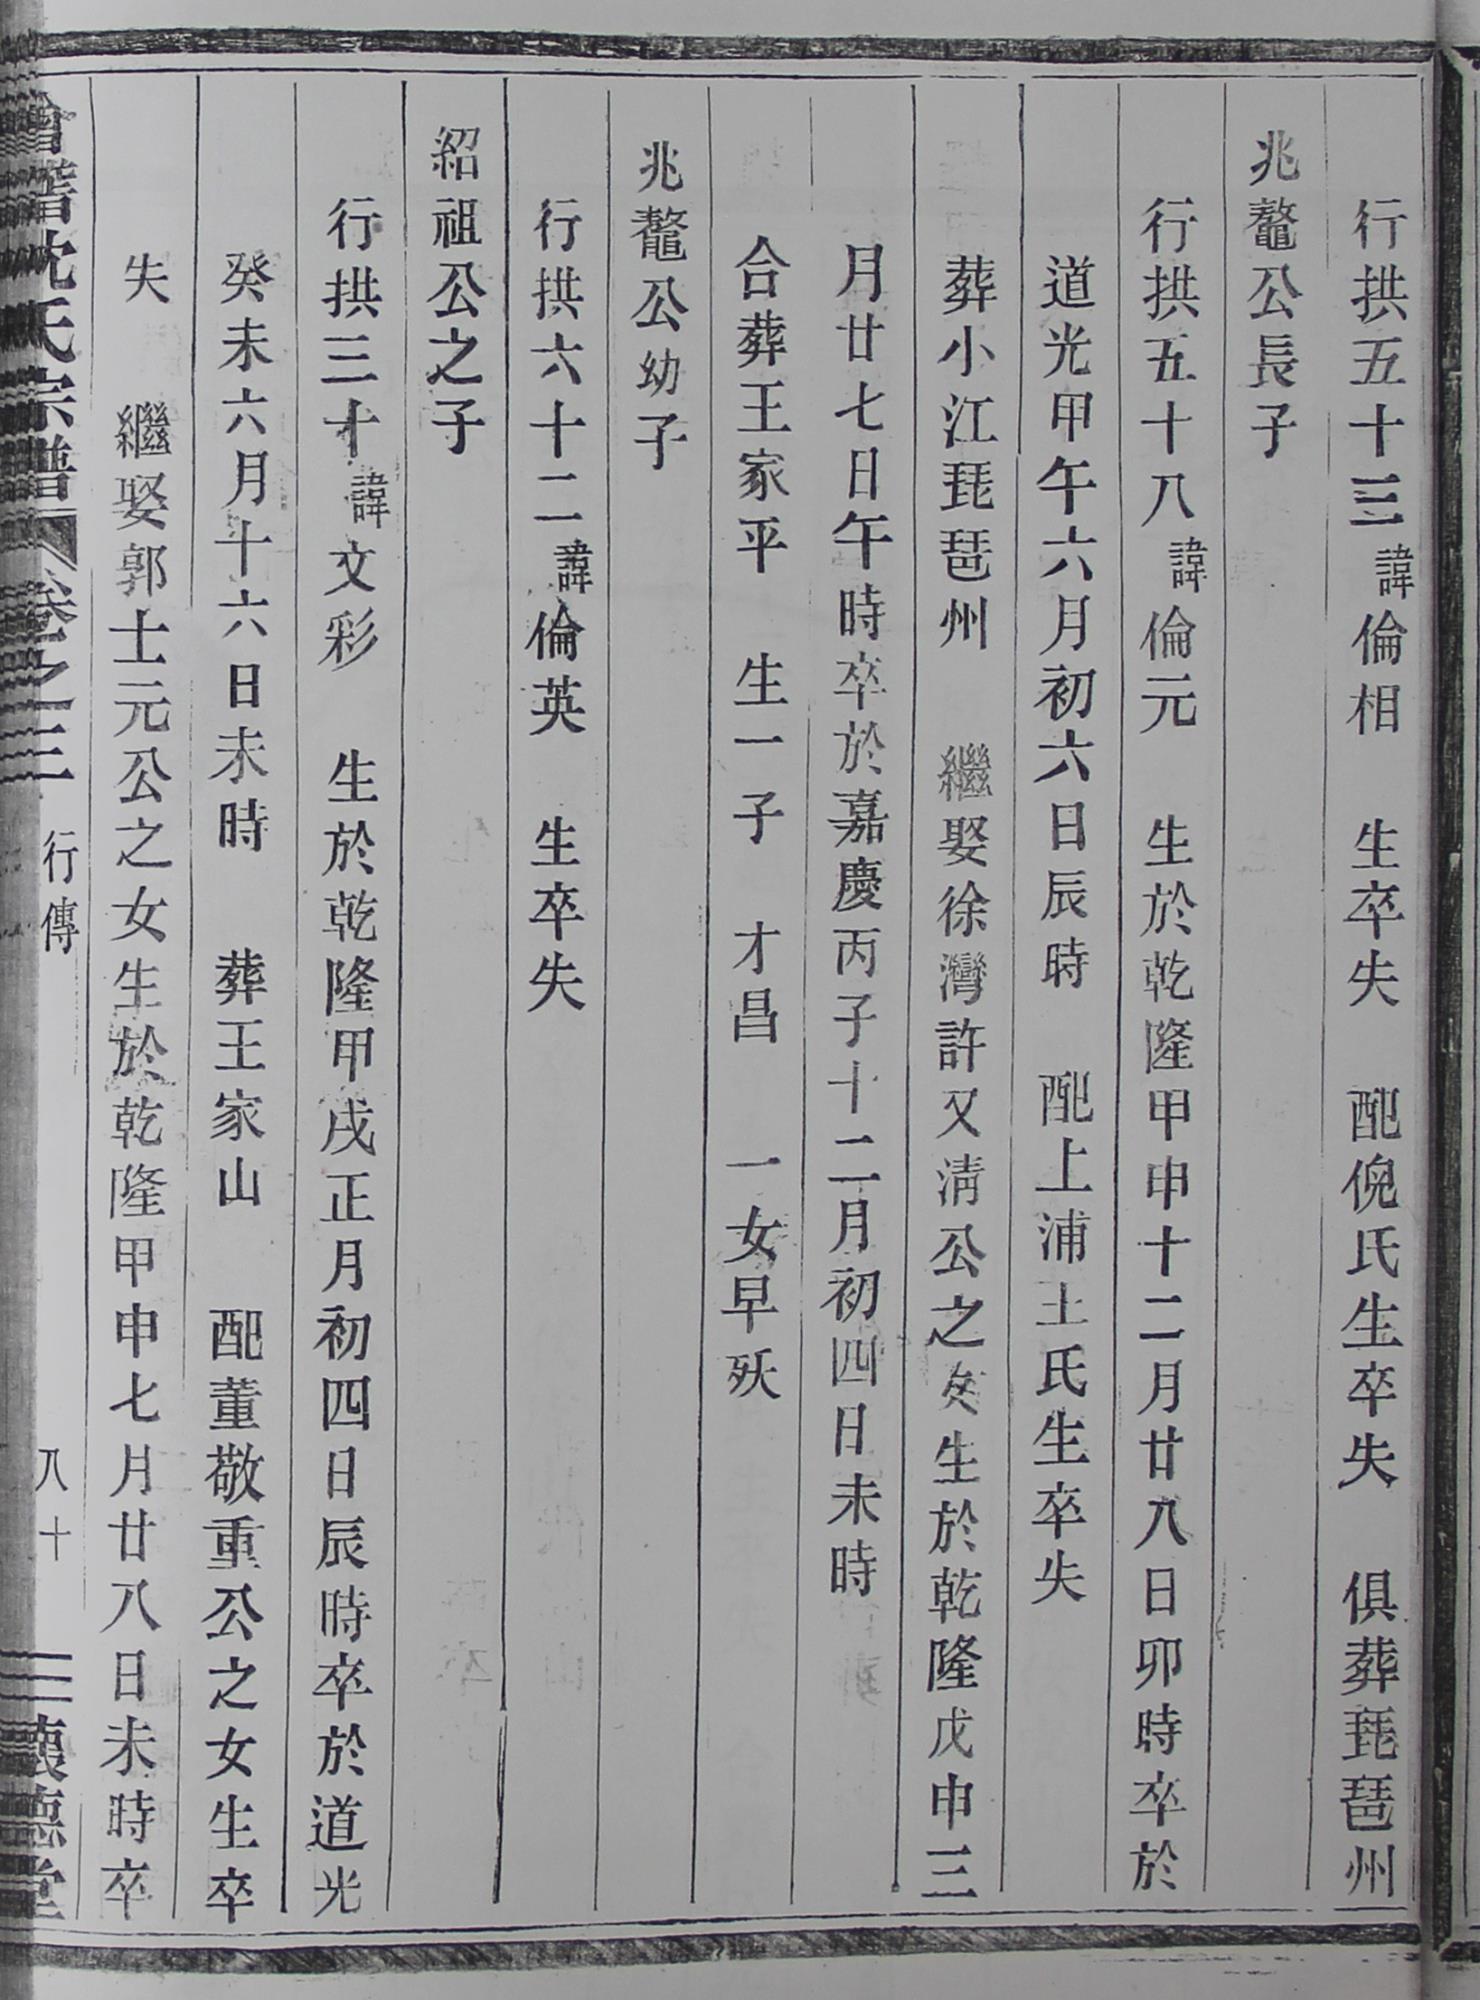 行拱五十三諱倫相　生卒失　配倪氏生卒失　俱葬琵琶州
兆鼇公長子
行拱五十八諱倫元　生於乾隆甲申十二月廿八日卯時卒於
道光甲午六月初六日辰時　配上浦王氏生卒失
葬小江琵琶州　繼娶徐灣許又淸公之女生於乾隆戊申三
月廿七日午時卒於嘉慶丙子十二月初四日未時
合葬王家平　生一子　才昌　一女早殀
兆鼇公幼子
行拱六十二諱倫英　生卒失
紹祖公之子
行拱三十諱文彩　生於乾隆甲戌正月初四日辰時卒於道光
癸未六月十六日未時　葬王家山　配董敬重公之女生卒
失　繼娶郭士元公之女生於乾隆甲申七月廿八日未時卒
會稽沈氏宗譜　卷之三　行傳　八十　懷德堂